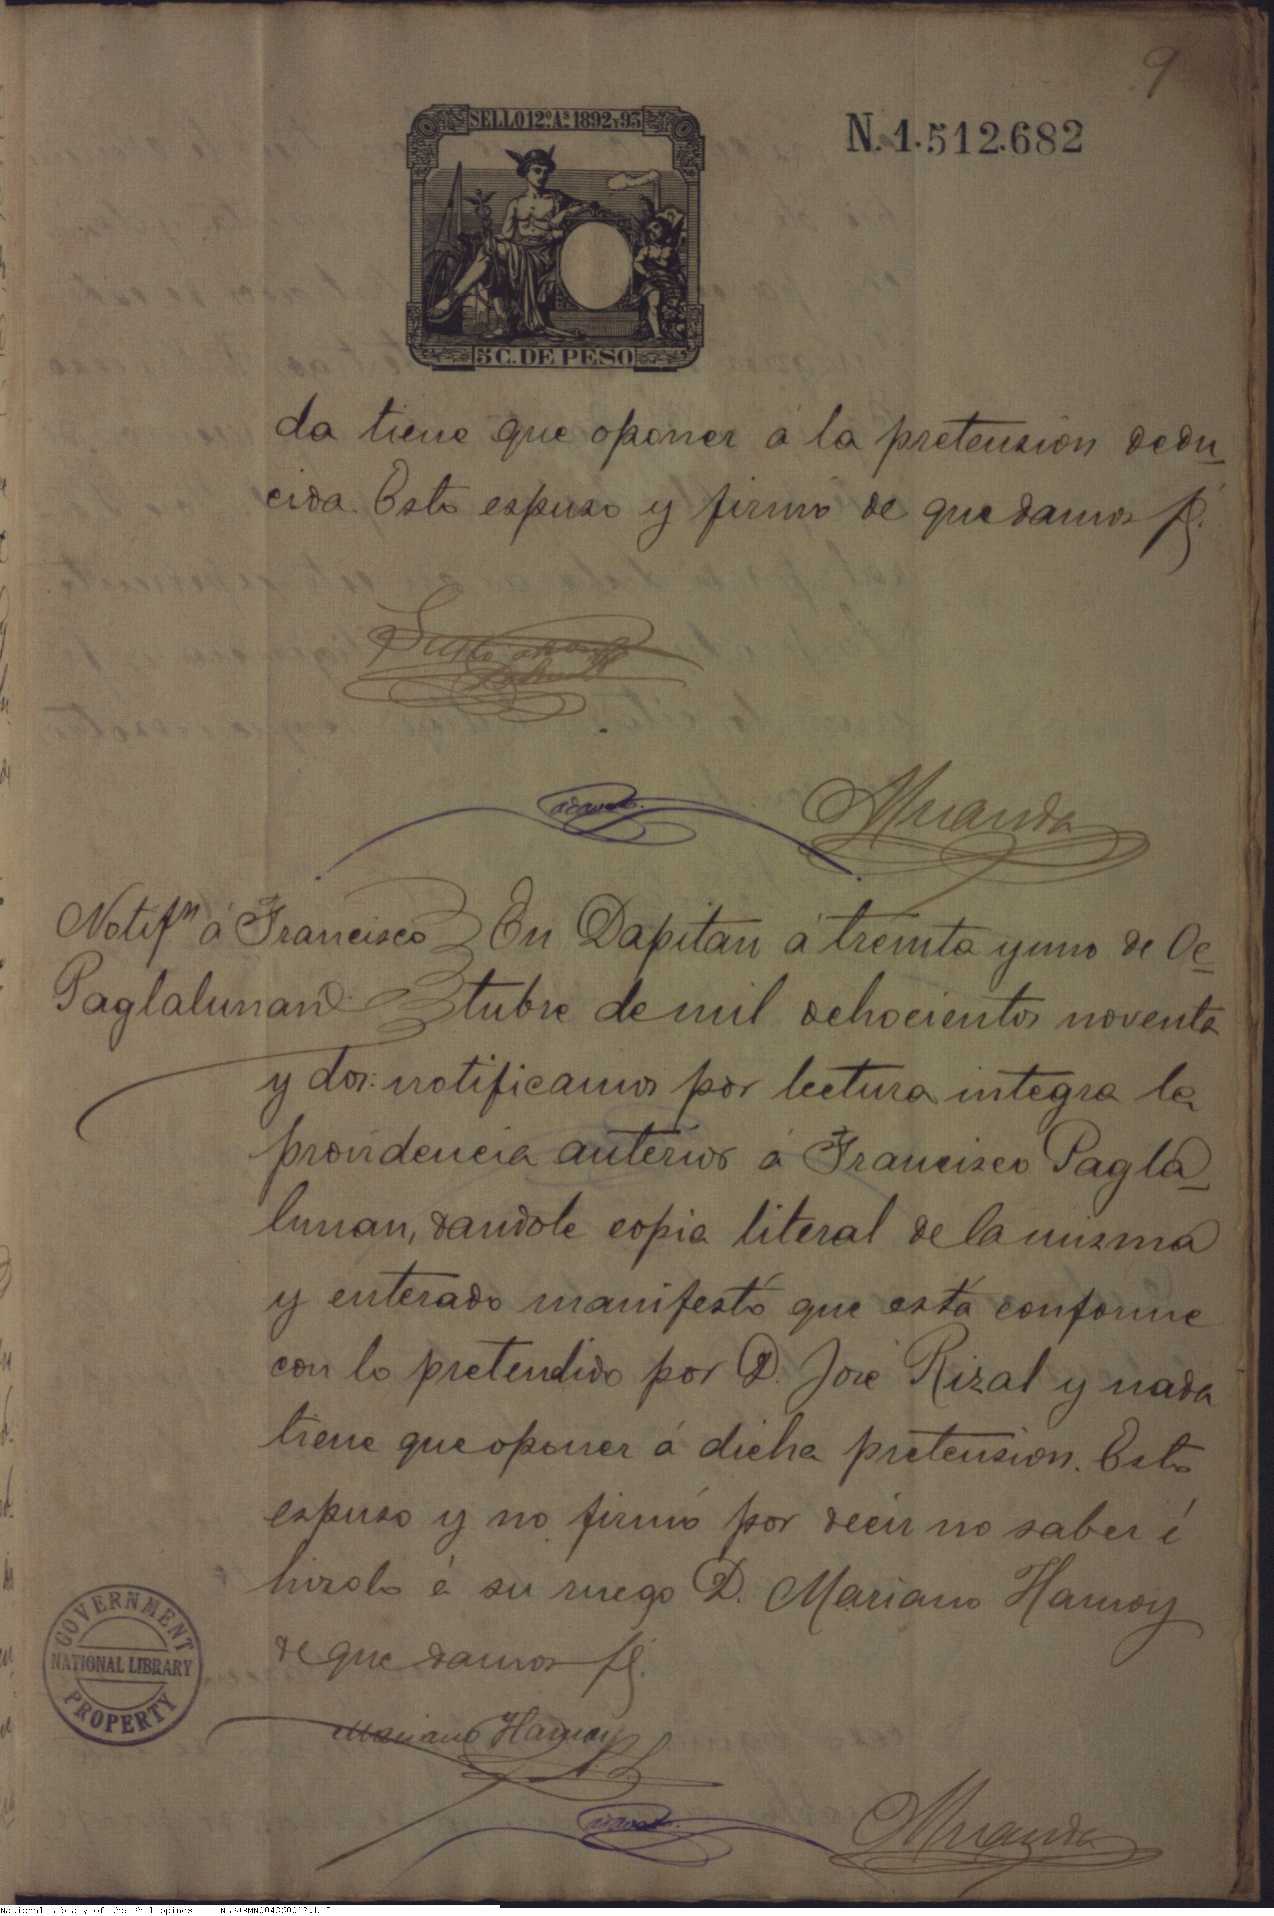 9
SELLO 12º Aº 1892 Y 93
N. 1.512.682
5 C. DE PESO
da tiene que oponer á la pretension dedu-
cida. Esto espuso y firmó de que damos fé.
Justo
Miranda
Notifⁿ á Francisco En Dapitan á treinta y uno de Oc-
Paglalunan tubre de mil ochocientos noventa
y dos: notificamos por lectura integra la
providencia anterior á Francisco Pagla-
lunan, dandole copia literal de la misma
y enterado manifestó que está conforme
con lo pretendido por D. José Rizal y nada
tiene que oponer á dicha pretension. Esto
espuso y no firmó por decir no saber é
hizolo á su ruego D. Mariano Hamoy
de que damos fé.
Mariano Hamoy
Miranda
GOVERNMENT
NATIONAL LIBRARY
PROPERTY
National Library of the Philippines